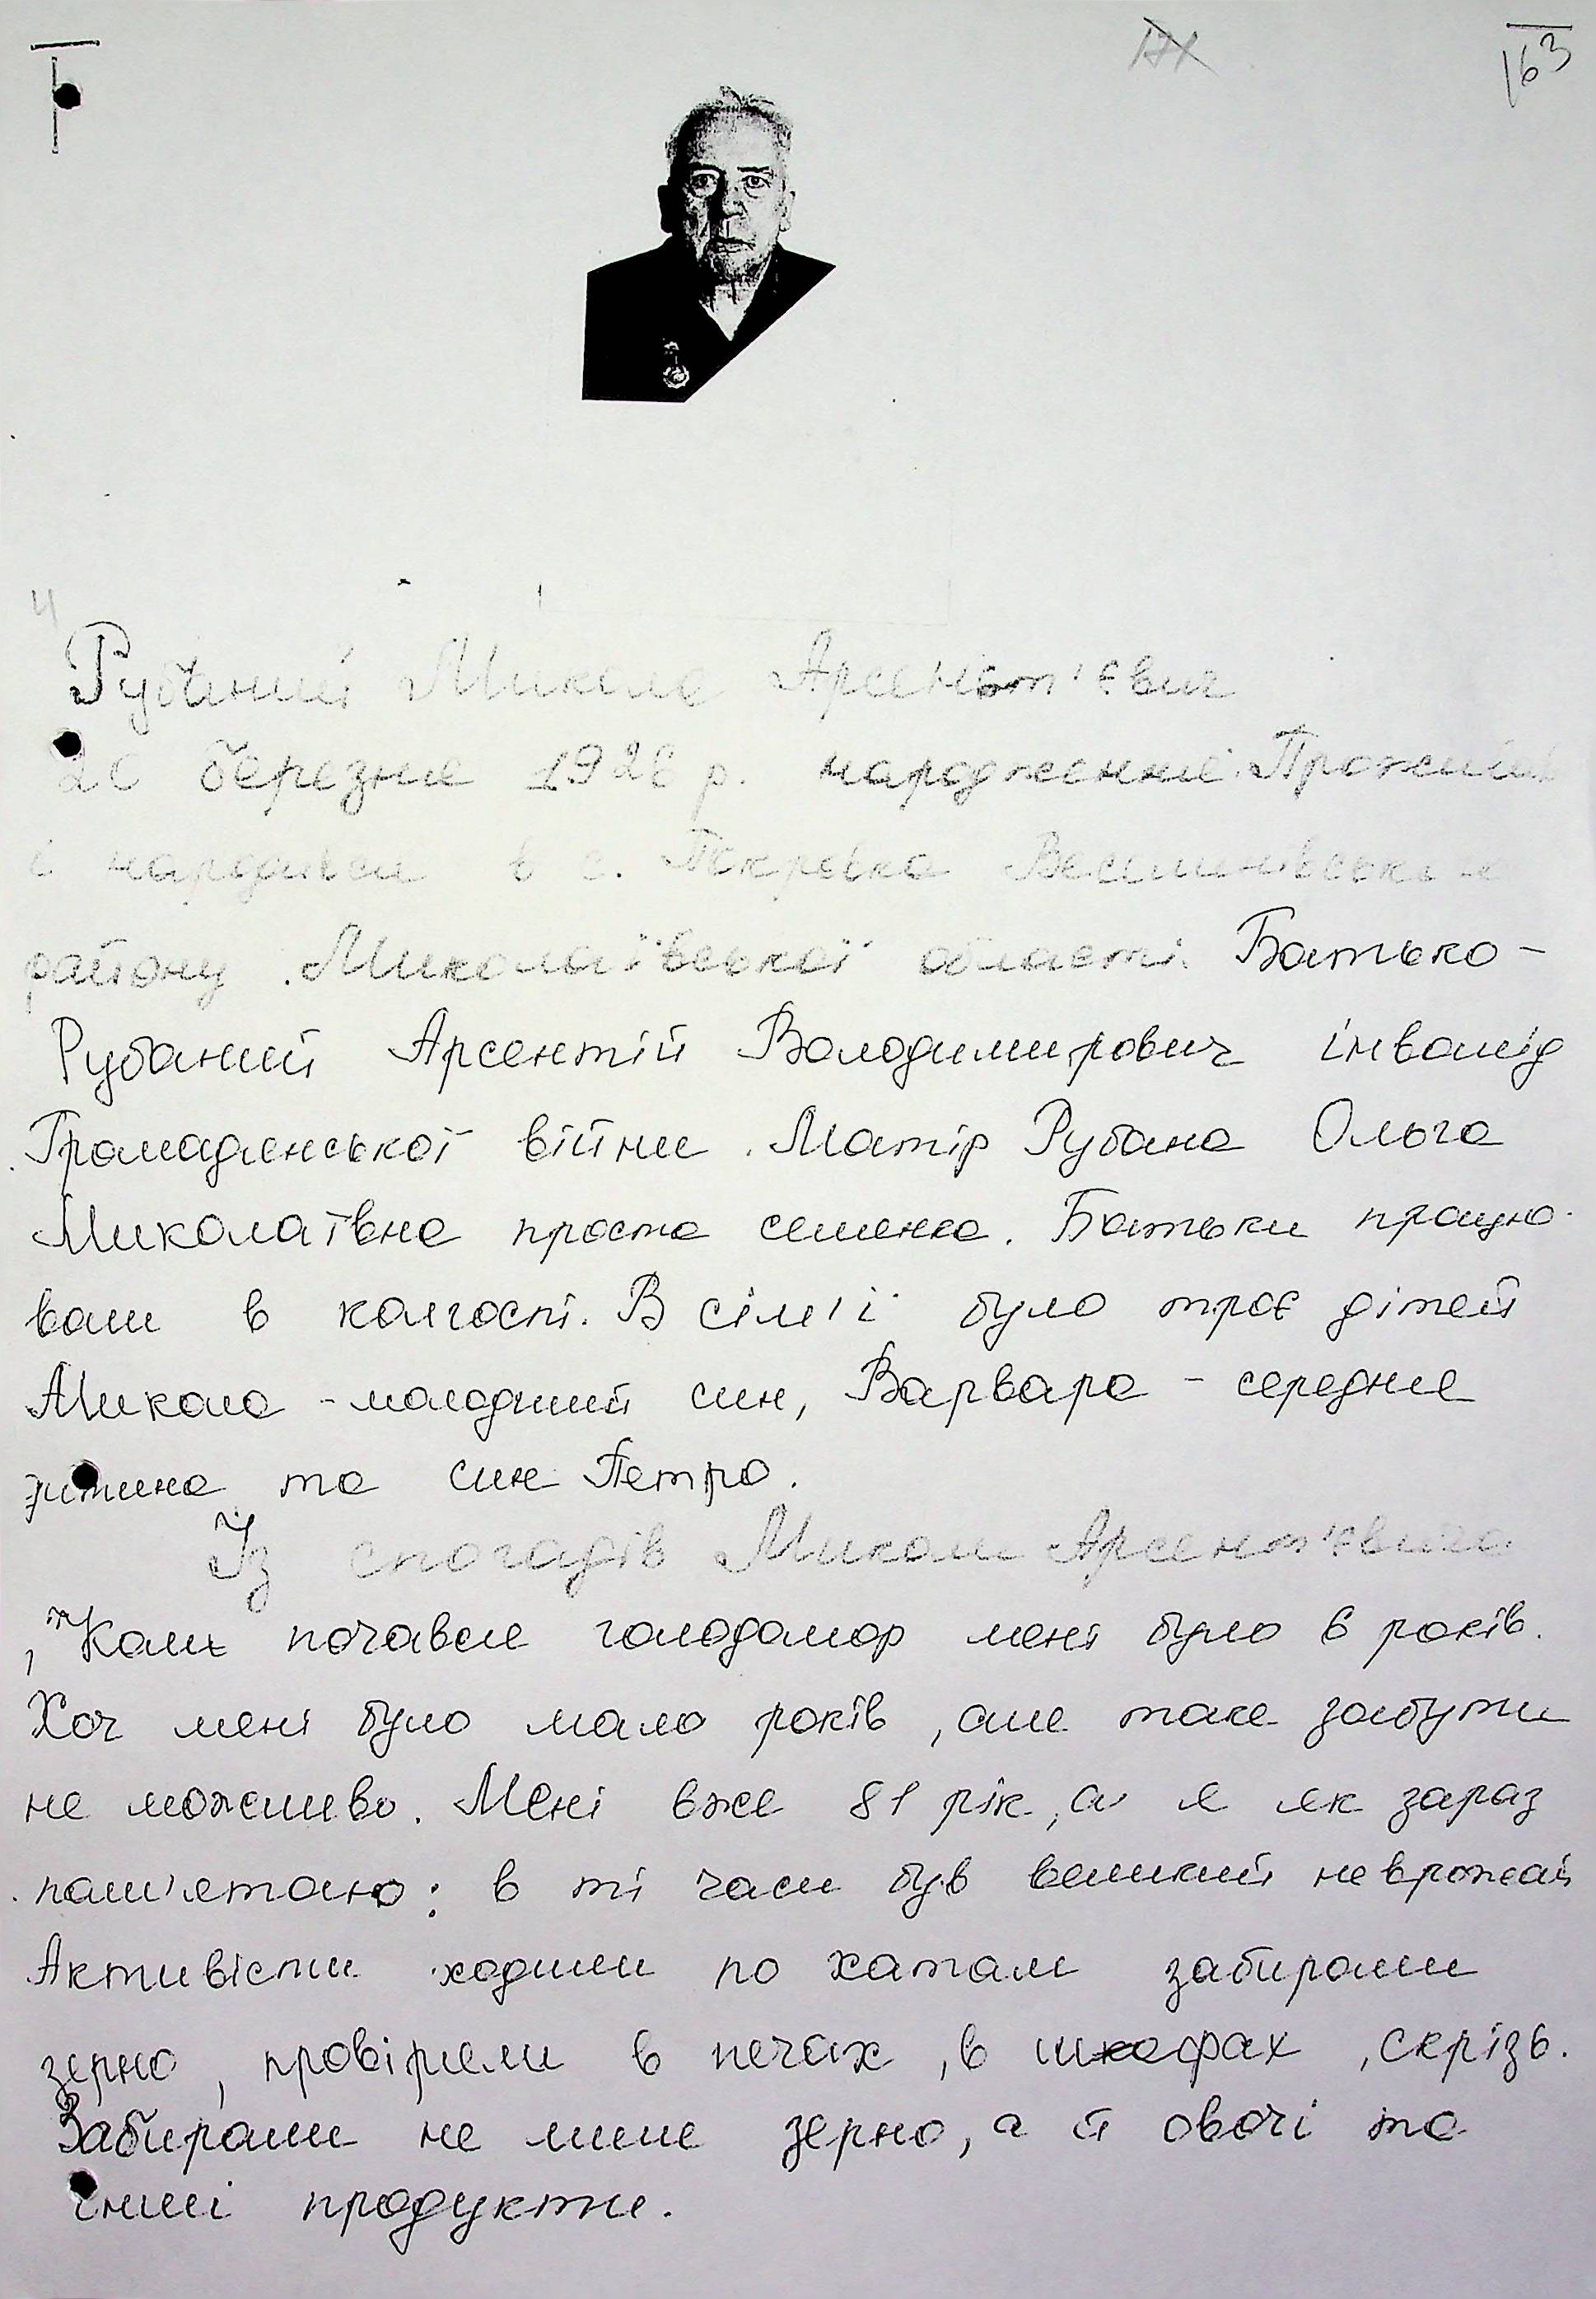 171
163
Рубаний Микола Арсент'євич
20 березня 1926 р. народження. Проживає
і народився в с. Покровка Веселинівського
району Миколаївської області. Батько -
Рубаний Арсентій Володимирович інвалід
Громадянської війни. Матір Рубана Ольга
Миколаївна проста селянка. Батьки працю-
вали в колгоспі. В сім'ї було троє дітей
Микола - молодший син, Варвара - середня
дитина та син Петро.
Із спогадів Миколи Арсент'євича
"Коли почався голодомор мені було 6 років.
Хоч мені було мало років, але таке забути
не можливо. Мені вже 81 рік, а я як зараз
пам'ятаю: в ті часи був великий неврожай
Активісти ходили по хатам забирали
зерно, провіряли в печах, в шкафах, скрізь.
Забирали не лише зерно, а й овочі та
інші продукти.